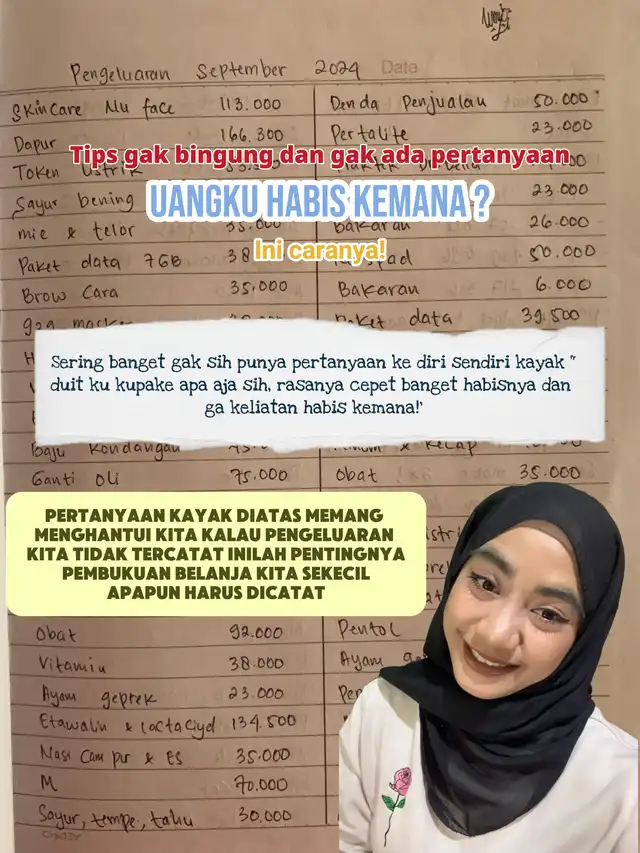 Pengeluaran September 2024 Date
Skincare Nu face 113.000
Dapur 166.300
Token
Sayur bening
mie & telor 35.000
Paket data 7GB 38
Brow Cara 35.000
Denda Penjualan 50.000
Pertalite 23.000
23.000
Bakaran 26.000
50.000
Bakaran 6.000
Paket data 39.500
Tips gak bingung dan gak ada pertanyaan
UANGKU HABIS KEMANA?
Ini caranya!
Sering banget gak sih punya pertanyaan ke diri sendiri kayak "
duit ku kupake apa aja sih, rasanya cepet banget habisnya dan
ga keliatan habis kemana!'
Baju Kondangan
Ganti Oli 75.000
& kecap
Obat 35.000
PERTANYAAN KAYAK DIATAS MEMANG
MENGHANTUI KITA KALAU PENGELUARAN
KITA TIDAK TERCATAT INILAH PENTINGNYA
PEMBUKUAN BELANJA KITA SEKECIL
APAPUN HARUS DICATAT
Obat 92.000
Vitamin 38.000
Ayam geprek 23.000
Etawalin & Lactacyd 134.500
Nasi Campur & ES 35.000
M 70.000
Sayur, tempe, tahu 30.000
Pentol
Ayam